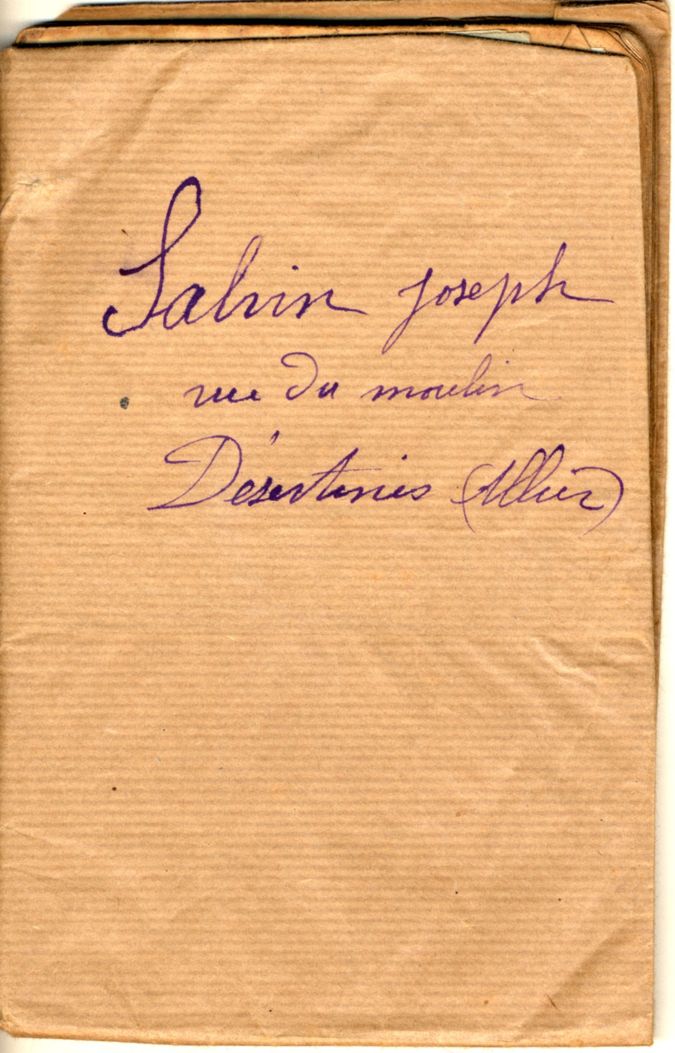 Salvin Joseph
rue du moulin
Désertines (Allier)